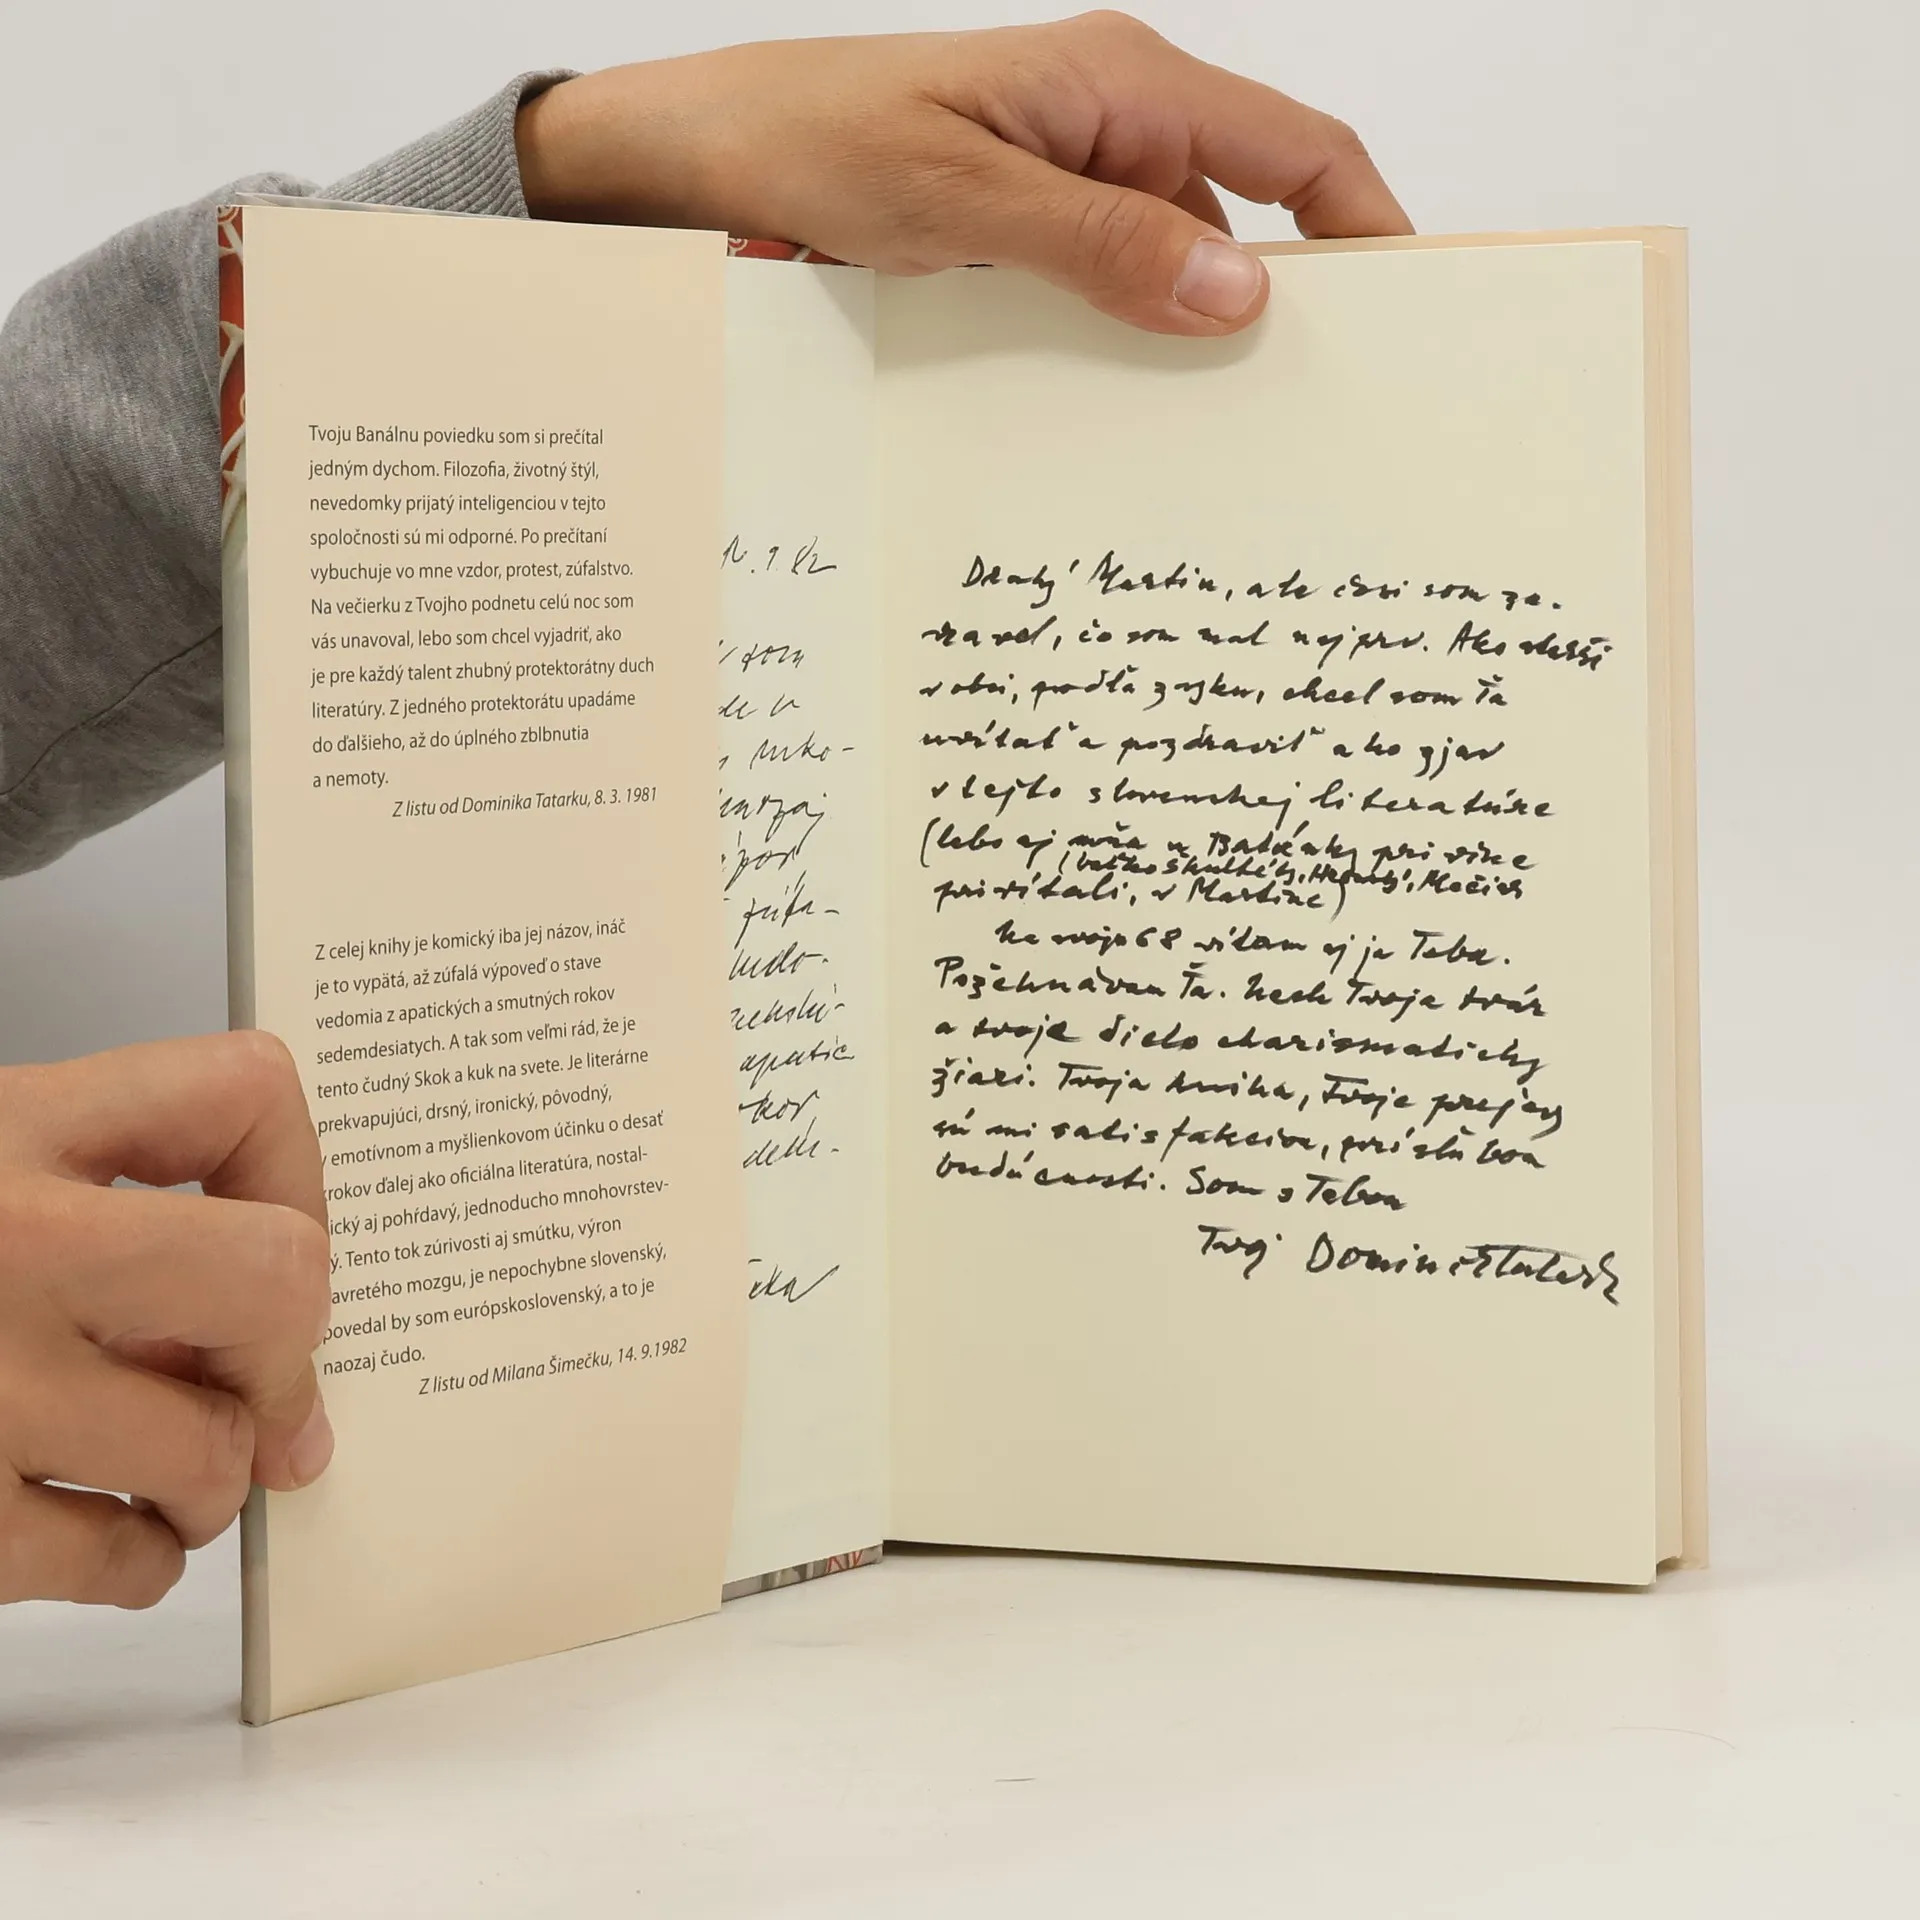 Tvoju Banálnu poviedku som si prečítal
jedným dychom. Filozofia, životný štýl,
nevedomky prijatý inteligenciou v tejto
spoločnosti sú mi odporné. Po prečítaní
vybuchuje vo mne vzdor, protest, zúfalstvo.
Na večierku z Tvojho podnetu celú noc som
vás unavoval, lebo som chcel vyjadriť, ako
je pre každý talent zhubný protektorátny duch
literatúry. Z jedného protektorátu upadáme
do ďalšieho, až do úplného zblbnutia
a nemoty.
Z listu od Dominika Tatarku, 8. 3. 1981
Z celej knihy je komický iba jej názov, ináč
je to vypätá, až zúfalá výpoveď o stave
vedomia z apatických a smutných rokov
sedemdesiatych. A tak som veľmi rád, že je
tento čudný Skok a kuk na svete. Je literárne
prekvapujúci, drsný, ironický, pôvodný,
v emotívnom a myšlienkovom účinku o desať
rokov ďalej ako oficiálna literatúra, nostal-
ický aj pohŕdavý, jednoducho mnohovrstev-
ý. Tento tok zúrivosti aj smútku, výron
avretého mozgu, je nepochybne slovenský,
povedal by som európskoslovenský, a to je
naozaj čudo.
Z listu od Milana Šimečku, 14. 9.1982
9. 82
som
de v
nko-
naozaj
zúfa-
vedo-
apatic
rokov
čka
Drahý Martin, ale čosi som za-
vravel, čo som mal najprv. Ako starší
v obci, podľa zvyku, chcel som Ťa
uvítať a pozdraviť ako zjav
v tejto slovenskej literatúre
(lebo aj mňa u Baťánky pri víne
privítali, v Martine)
Na svoje 68 vítam aj ja Teba.
Požehnávam Ťa. Nech Tvoja tvár
a tvoje dielo charismaticky
žiari. Tvoja kniha, tvoje prejavy
sú mi satisfakciou, prísľubom
budúcnosti. Som s Tebou
Tvoj Dominik Tatarka